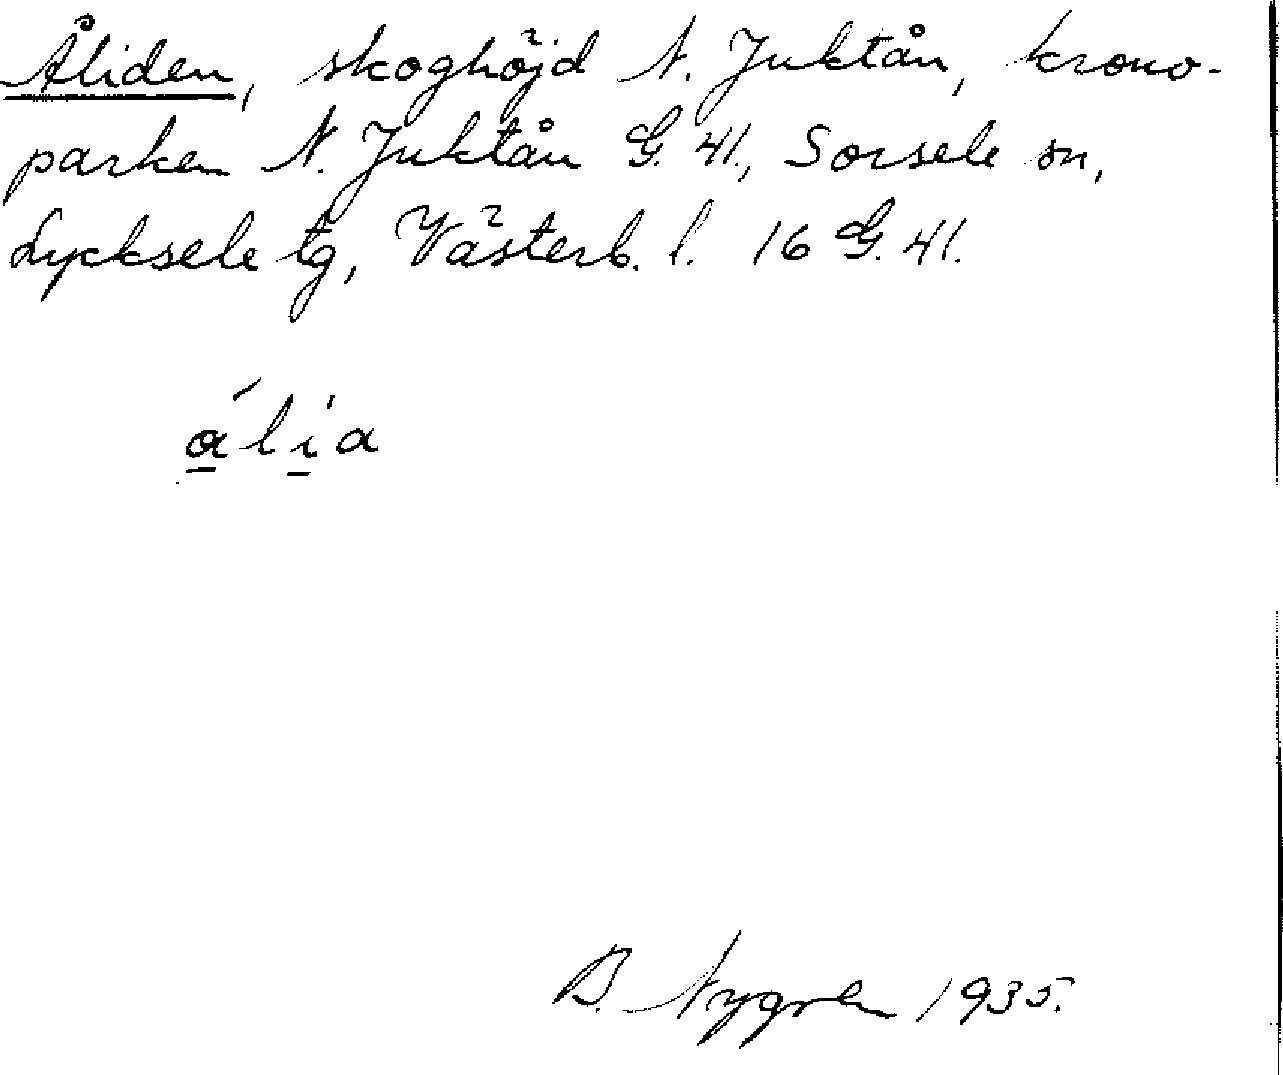 Åliden, skoghöjd N. Juktån, krono-
parken N. Juktån G. 41., Sorsele sn,
Lycksele tg, Västerb. l. 16 G. 41.
álía
B. Nygren 1935.